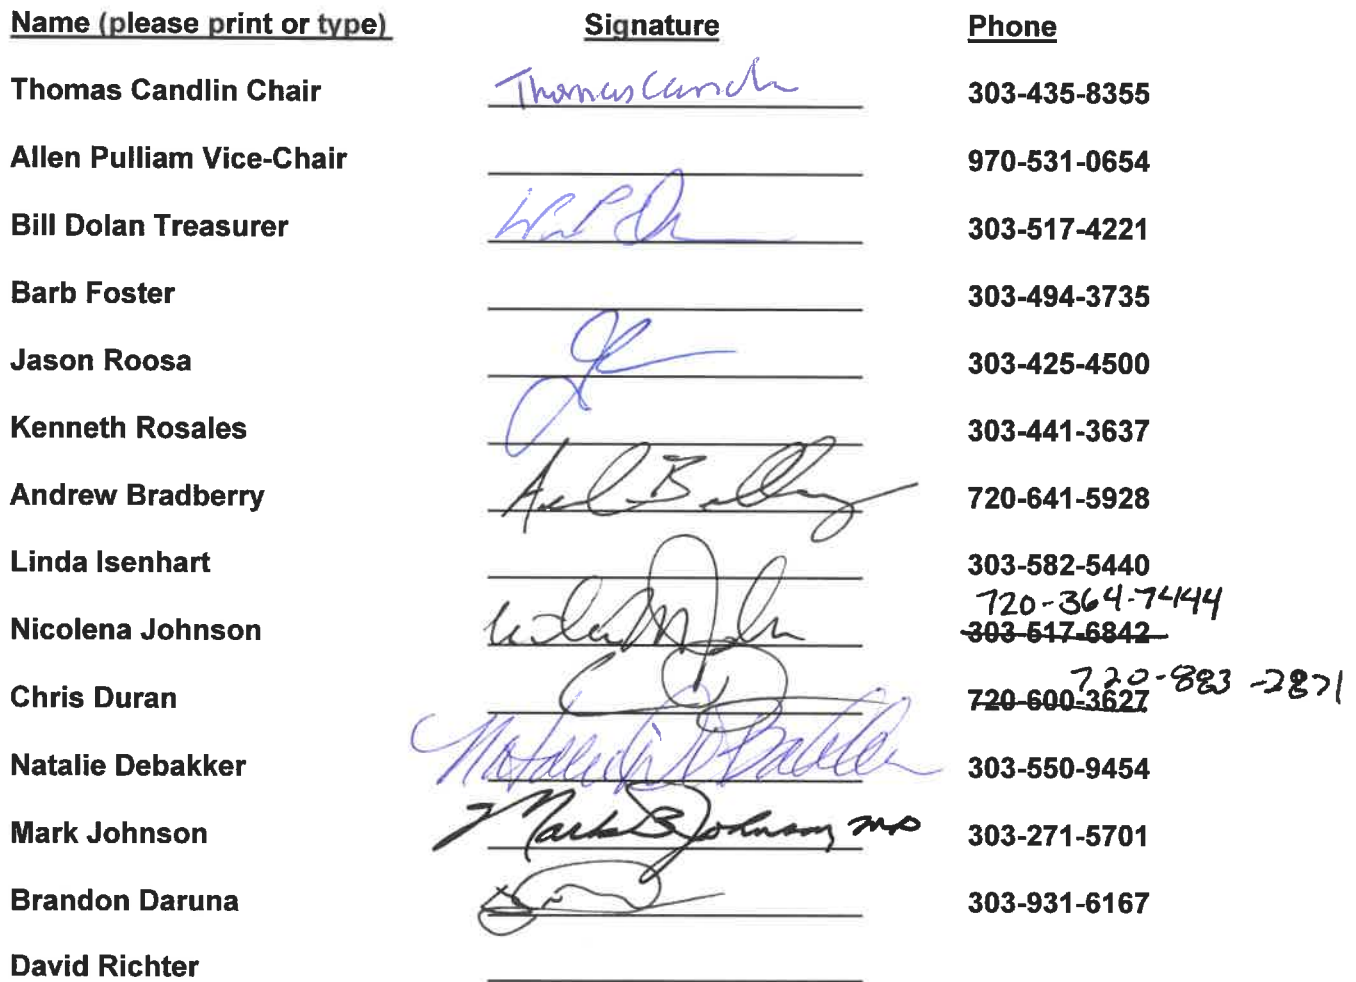 Name (please print or type) Signature Phone
Thomas Candlin Chair Thomas Candln 303-435-8355
Allen Pulliam Vice-Chair 970-531-0654
Bill Dolan Treasurer 303-517-4221
Barb Foster 303-494-3735
Jason Roosa 303-425-4500
Kenneth Rosales 303-441-3637
Andrew Bradberry 720-641-5928
Linda Isenhart 303-582-5440
720-364-7444
Nicolena Johnson 303-517-6842
720-883-2871
Chris Duran 720-600-3627
Natalie Debakker 303-550-9454
Mark Johnson Mark B Johnson MD 303-271-5701
Brandon Daruna 303-931-6167
David Richter